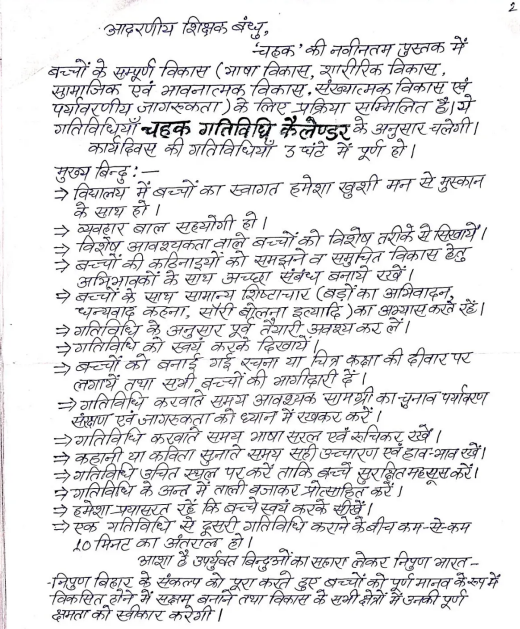 2
आदरणीय शिक्षक बंधु,
'चहक' की नवीनतम पुस्तक में
बच्चों के सम्पूर्ण विकास (भाषा विकास, शारीरिक विकास,
सामाजिक एवं भावनात्मक विकास, संख्यात्मक विकास एवं
पर्यावरणीय जागरूकता) के लिए प्रक्रिया सम्मिलित है। ये
गतिविधियाँ चहक गतिविधि कैलेण्डर के अनुसार चलेगी।
कार्यदिवस की गतिविधियाँ 3 घंटे में पूर्ण हो।
मुख्य बिन्दु :—
⇒ विद्यालय में बच्चों का स्वागत हमेशा खुशी मन से मुस्कान
के साथ हो।
⇒ व्यवहार बाल सहयोगी हो।
⇒ विशेष आवश्यकता वाले बच्चों को विशेष तरीके से सिखायें।
⇒ बच्चों की कठिनाइयों को समझने व समुचित विकास हेतु
अभिभावकों के साथ अच्छा संबंध बनाये रखें।
⇒ बच्चों के साथ सामान्य शिष्टाचार (बड़ों का अभिवादन,
धन्यवाद कहना, सॉरी बोलना इत्यादि) का अभ्यास करते रहें।
⇒ गतिविधि के अनुसार पूर्व तैयारी अवश्य कर लें।
⇒ गतिविधि को स्वयं करके दिखायें।
⇒ बच्चों को बनाई गई रचना या चित्र कक्षा की दीवार पर
लगायें तथा सभी बच्चों की भागीदारी दें।
⇒ गतिविधि करवाते समय आवश्यक सामग्री का चुनाव पर्यावरण
संरक्षण एवं जागरूकता को ध्यान में रखकर करें।
⇒ गतिविधि करवाते समय भाषा सरल एवं रूचिकर रखें।
⇒ कहानी या कविता सुनाते समय सही उच्चारण एवं हाव-भाव रखें।
⇒ गतिविधि उचित स्थल पर करें ताकि बच्चे सुरक्षित महसूस करें।
⇒ गतिविधि के अन्त में ताली बजाकर प्रोत्साहित करें।
⇒ हमेशा प्रयासरत रहें कि बच्चे स्वयं करके सीखें।
⇒ एक गतिविधि से दूसरी गतिविधि कराने के बीच कम-से-कम
10 मिनट का अंतराल हो।
आशा है उपर्युक्त बिन्दुओं का सहारा लेकर निपुण भारत-
-निपुण बिहार के संकल्प को पूरा करते हुए बच्चों को पूर्ण मानव के रूप में
विकसित होने में सक्षम बनाने तथा विकास के सभी क्षेत्रों में उनकी पूर्ण
क्षमता को स्वीकार करेगी।